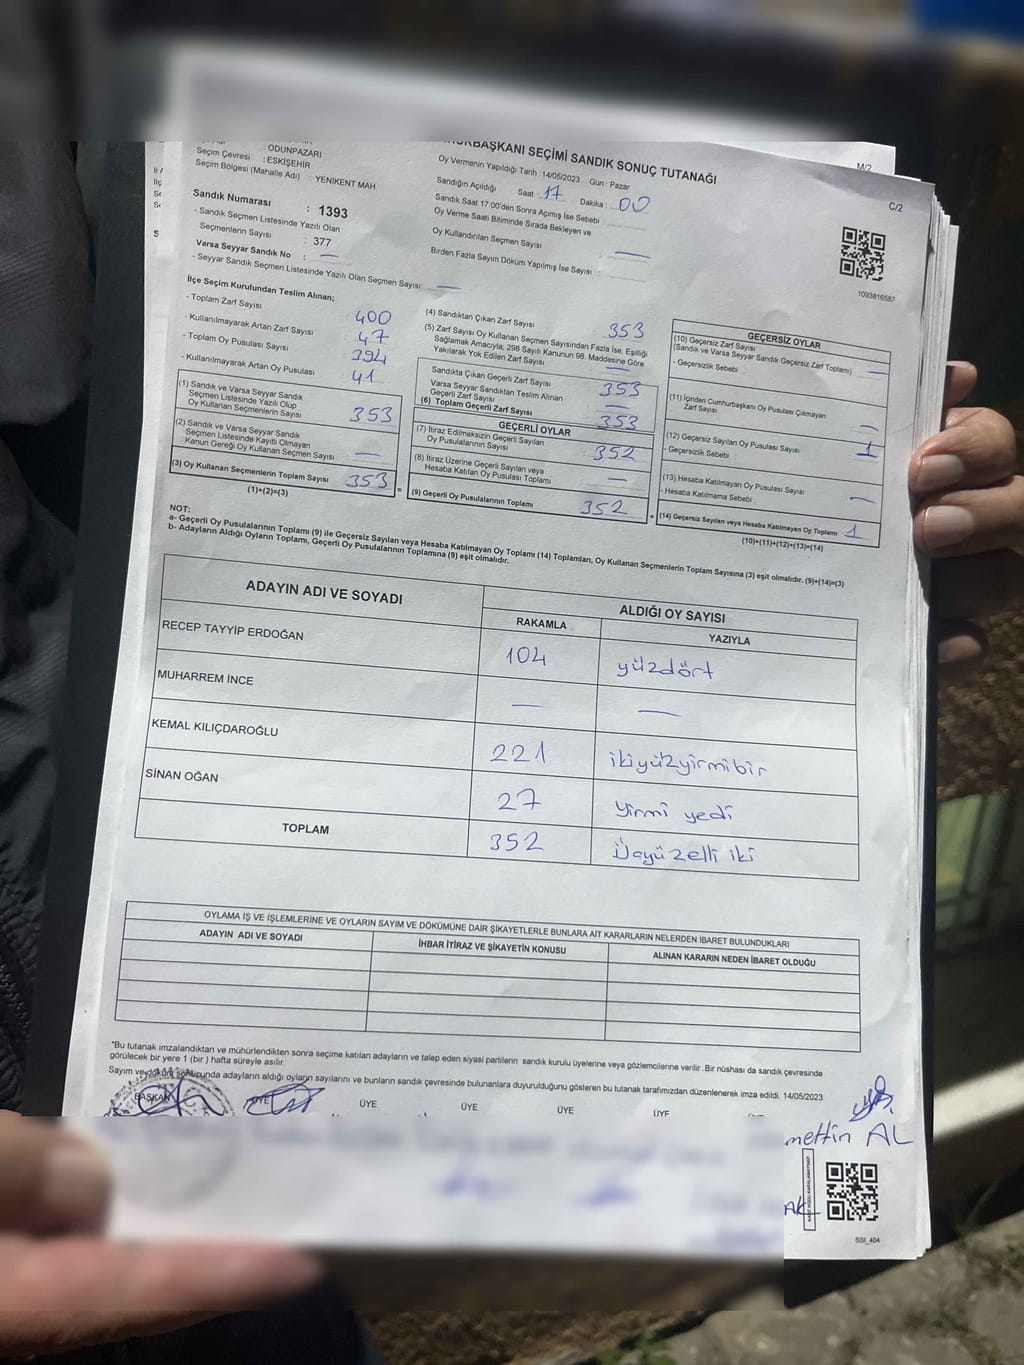 BAŞKANI SEÇİMİ SANDIK SONUÇ TUTANAĞI
M/2
C/2
: ODUNPAZARI
Seçim Çevresi : ESKİŞEHİR
Seçim Bölgesi (Mahalle Adı) : YENİKENT MAH
Oy Vermenin Yapıldığı Tarih : 14/05/2023 Gün : Pazar
Sandığın Açıldığı Saat : 17 Dakika : 00
Sandık Saat 17:00'den Sonra Açımış İse Sebebi :
Oy Verme Saati Bitiminde Sırada Bekleyen ve
Oy Kullandırılan Seçmen Sayısı : —
Birden Fazla Sayım Döküm Yapılmış İse Sayısı :
Sandık Numarası : 1393
- Sandık Seçmen Listesinde Yazılı Olan
Seçmenlerin Sayısı : 377
Varsa Seyyar Sandık No : —
- Seyyar Sandık Seçmen Listesinde Yazılı Olan Seçmen Sayısı : —
1093816587
İlçe Seçim Kurulundan Teslim Alınan;
- Toplam Zarf Sayısı : 400
- Kullanılmayarak Artan Zarf Sayısı : 47
- Toplam Oy Pusulası Sayısı : 394
- Kullanılmayarak Artan Oy Pusulası : 41
(1) Sandık ve Varsa Seyyar Sandık
Seçmen Listesinde Yazılı Olup
Oy Kullanan Seçmenlerin Sayısı : 353
(2) Sandık ve Varsa Seyyar Sandık
Seçmen Listesinde Kayıtlı Olmayan
Kanun Gereği Oy Kullanan Seçmen Sayısı : —
(3) Oy Kullanan Seçmenlerin Toplam Sayısı : 353
(1)+(2)=(3)
(4) Sandıktan Çıkan Zarf Sayısı : 353
(5) Zarf Sayısı Oy Kullanan Seçmen Sayısından Fazla İse, Eşitliği
Sağlamak Amacıyla; 298 Sayılı Kanunun 98. Maddesine Göre
Yakılarak Yok Edilen Zarf Sayısı : —
Sandıkta Çıkan Geçerli Zarf Sayısı : 353
Varsa Seyyar Sandıktan Teslim Alınan
Geçerli Zarf Sayısı : —
(6) Toplam Geçerli Zarf Sayısı : 353
GEÇERLİ OYLAR
(7) İtiraz Edilmeksizin Geçerli Sayılan
Oy Pusulalarının Sayısı : 352
(8) İtiraz Üzerine Geçerli Sayılan veya
Hesaba Katılan Oy Pusulası Toplamı : —
(9) Geçerli Oy Pusulalarının Toplamı : 352
GEÇERSİZ OYLAR
(10) Geçersiz Zarf Sayısı
(Sandık ve Varsa Seyyar Sandık Geçersiz Zarf Toplamı) : —
- Geçersizlik Sebebi :
(11) İçinden Cumhurbaşkanı Oy Pusulası Çıkmayan
Zarf Sayısı : —
(12) Geçersiz Sayılan Oy Pusulası Sayısı : 1
- Geçersizlik Sebebi :
(13) Hesaba Katılmayan Oy Pusulası Sayısı : —
- Hesaba Katılmama Sebebi :
(14) Geçersiz Sayılan veya Hesaba Katılmayan Oy Toplamı : 1
(10)+(11)+(12)+(13)=(14)
NOT:
a- Geçerli Oy Pusulalarının Toplamı (9) ile Geçersiz Sayılan veya Hesaba Katılmayan Oy Toplamı (14) Toplamları, Oy Kullanan Seçmenlerin Toplam Sayısına (3) eşit olmalıdır. (9)+(14)=(3)
b- Adayların Aldığı Oyların Toplamı, Geçerli Oy Pusulalarının Toplamına (9) eşit olmalıdır.
ADAYIN ADI VE SOYADI
ALDIĞI OY SAYISI
RAKAMLA YAZIYLA
RECEP TAYYİP ERDOĞAN 104 yüzdört
MUHARREM İNCE — —
KEMAL KILIÇDAROĞLU 221 ikiyüzyirmibir
SİNAN OĞAN 27 Yirmi yedi
TOPLAM 352 Üçyüzelli iki
OYLAMA İŞ VE İŞLEMLERİNE VE OYLARIN SAYIM VE DÖKÜMÜNE DAİR ŞİKAYETLERLE BUNLARA AİT KARARLARIN NELERDEN İBARET BULUNDUKLARI
ADAYIN ADI VE SOYADI İHBAR İTİRAZ VE ŞİKAYETİN KONUSU ALINAN KARARIN NEDEN İBARET OLDUĞU
"Bu tutanak imzalandıktan ve mühürlendikten sonra seçime katılan adayların ve talep eden siyasi partilerin sandık kurulu üyelerine veya gözlemcilerine verilir. Bir nüshası da sandık çevresinde
görülecek bir yere 1 (bir ) hafta süreyle asılır.
Sayım ve döküm sonucunda adayların aldığı oyların sayılarını ve bunların sandık çevresinde bulunanlara duyurulduğunu gösteren bu tutanak tarafımızdan düzenlenerek imza edildi. 14/05/2023
BAŞKAN ÜYE ÜYE ÜYE ÜYE ÜYE
mettin AL
AK
SSI_404